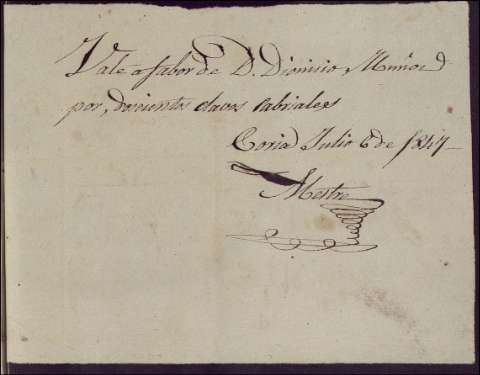 Vale a fabor de D. Dionisio Muñoz
por, docientos clavos cabriales
Coria Julio 6 de 1847
Mestre